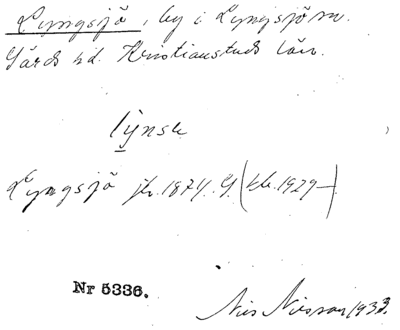 Lyngsjö, by i Lyngsjö sn.
Gärds hd. Kristianstads län.
lynsē
Lyngsjö jb. 1874. G (kb. 1929–)
Nr 5336.
Nils Nilsson 1933.